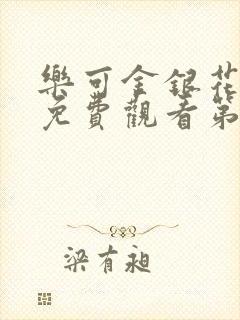 樂可金銀花
免費觀看第
梁有昶